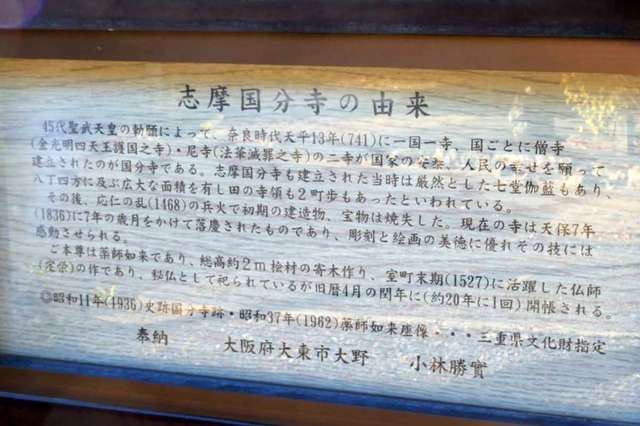 志摩国分寺の由来
45代聖武天皇の勅願によって、奈良時代天平13年(741)に一国一寺、国ごとに僧寺
(金光明四天王護国之寺)・尼寺(法華滅罪之寺)の二寺が国家の安泰、人民の幸せを願って
建立されたのが国分寺である。志摩国分寺も建立された当時は厳然とした七堂伽藍もあり、
八丁四方に及ぶ広大な面積を有し田の寺領も2町歩もあったといわれている。
その後、応仁の乱(1468)の兵火で初期の建造物、宝物は焼失した。現在の寺は天保7年
(1836)に7年の歳月をかけて落慶されたものであり、彫刻と絵画の美徳に優れその技には
感動させられる。
ご本尊は薬師如来であり、総高約2m桧材の寄木作り、室町末期(1527)に活躍した仏師
の作であり、秘仏として祀られているが旧暦4月の閏年に(約20年に1回)開帳される。
◎昭和11年(1936)史跡国分寺跡・昭和37年(1962)薬師如来座像・・・三重県文化財指定
奉納 大阪府大東市大野 小林勝實